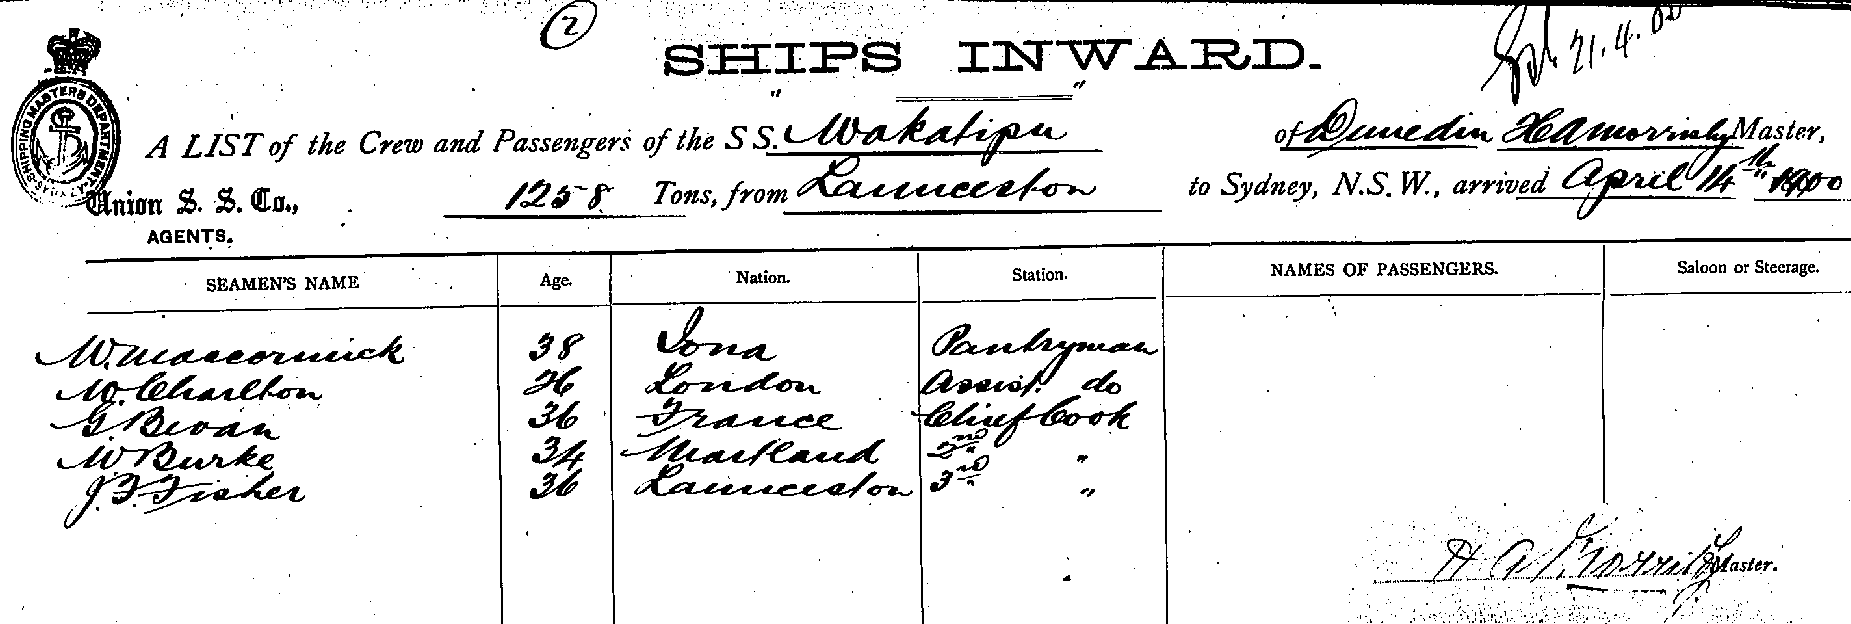 2
21.4.00
SHIPS INWARD.
SHIPPING MASTERS DEPARTMENT
A LIST of the Crew and Passengers of the S S. Wakatipu of Dunedin H A Morrisby Master,
Union S. S. Co., 1258 Tons, from Launceston to Sydney, N.S.W., arrived April 14th 1900
AGENTS.
SEAMEN'S NAME Age. Nation. Station. NAMES OF PASSENGERS. Saloon or Steerage.
W. Maccormick 38 Iona Pantryman
W. Charlton 26 London Assist. do
G. Bevan 36 France Chief Cook
W Burke 34 Maitland 2nd "
J. F. Fisher 36 Launceston 3rd "
H A Morrisby Master.